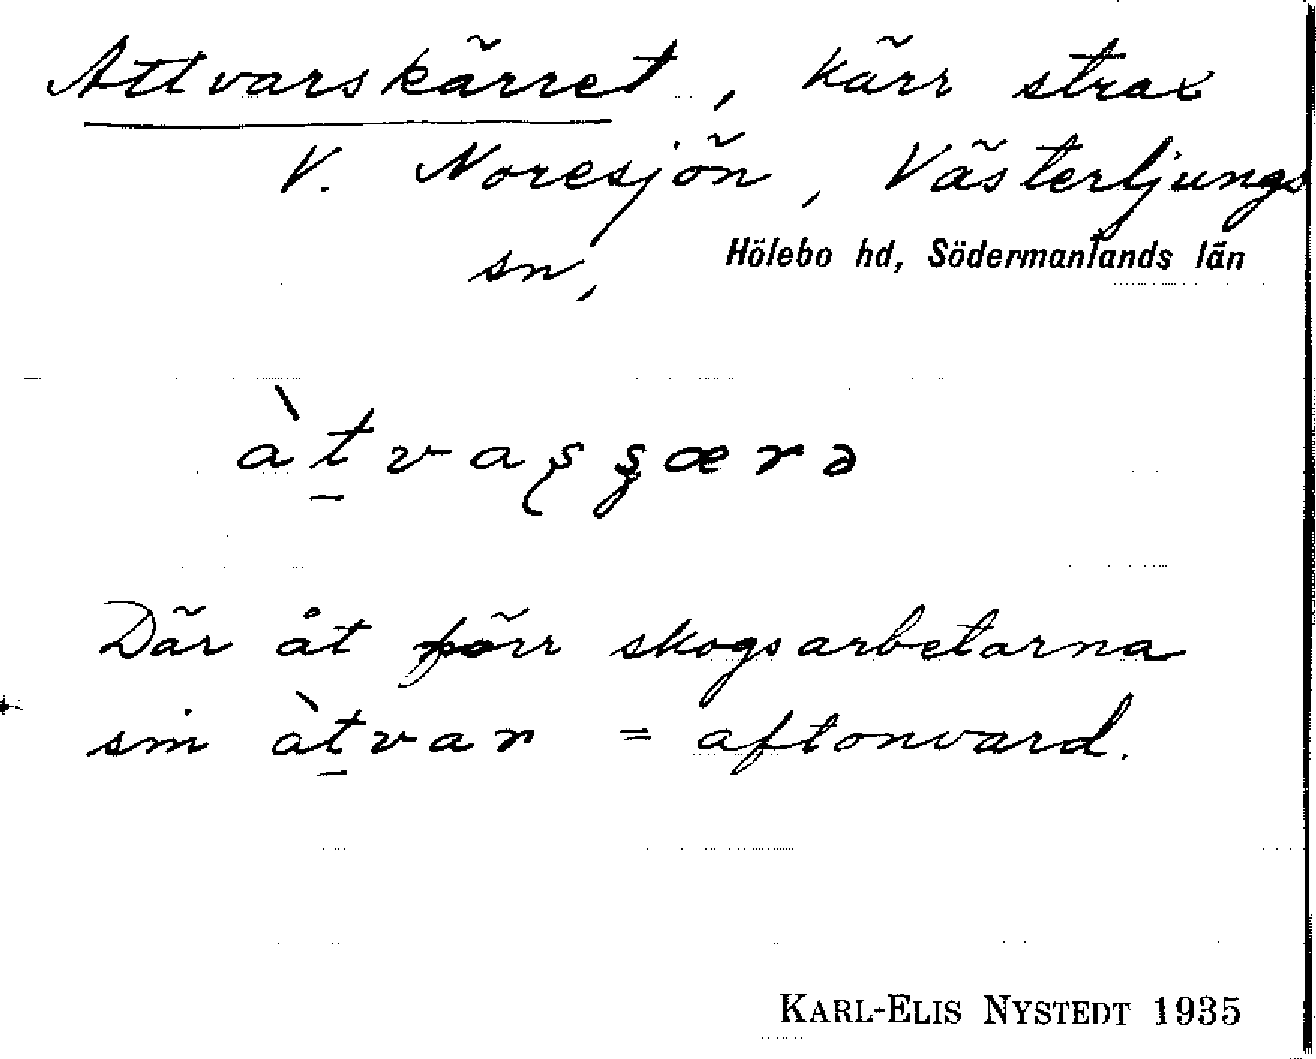 Attvarskärret, kärr strax
V. Noresjön, Västerljungs
sn, Hölebo hd, Södermanlands län
àt̲vaʂʂærə
Där åt förr skogsarbetarna
sin àt̲var = aftonvard.
KARL-ELIS NYSTEDT 1935